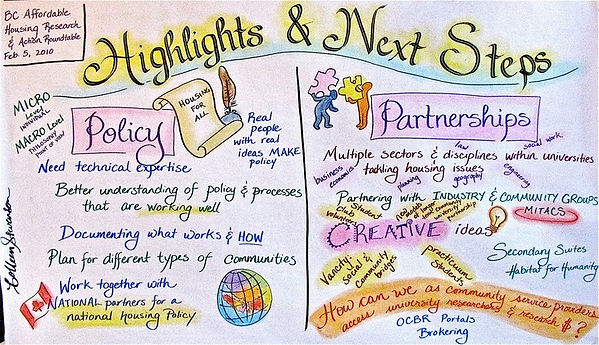 BC Affordable
Housing Research
& Action Roundtable
Feb 5, 2010
Highlights & Next Steps
MICRO
Level
INDIVIDUAL
MACRO Level
PHILOSOPHY
POINT OF VIEW
Policy
HOUSING
FOR
ALL
Real
people
with real
ideas MAKE
policy
Need technical expertise
Better understanding of policy & processes
that are working well
Documenting what works & HOW
Plan for different types of communities
Work together with
NATIONAL partners for a
national housing Policy
Partnerships
law
social work
Multiple sectors & disciplines within universities
tackling housing issues
business
economics
planning
geography
engineering
Partnering with INDUSTRY & COMMUNITY GROUPS
MITACS
Student
club
volunteers
university
partnership
CREATIVE ideas
Vancity
social &
Community
bridges
practicuum
Students
Secondary Suites
Habitat for Humanity
How can we as community service providers
access university researchers & research $?
OCBR Portals
Brokering